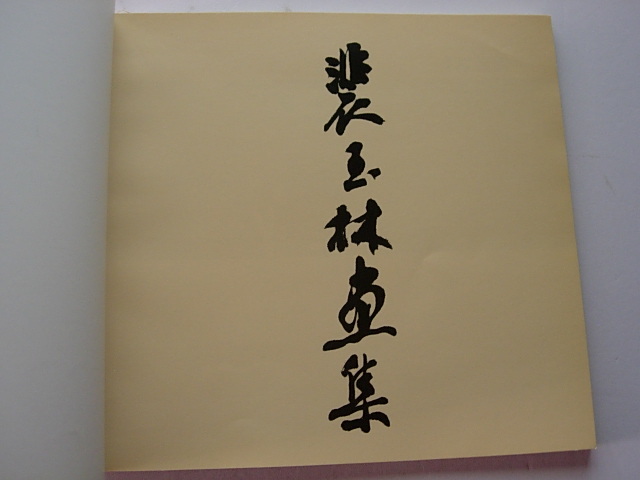 裴玉林画集